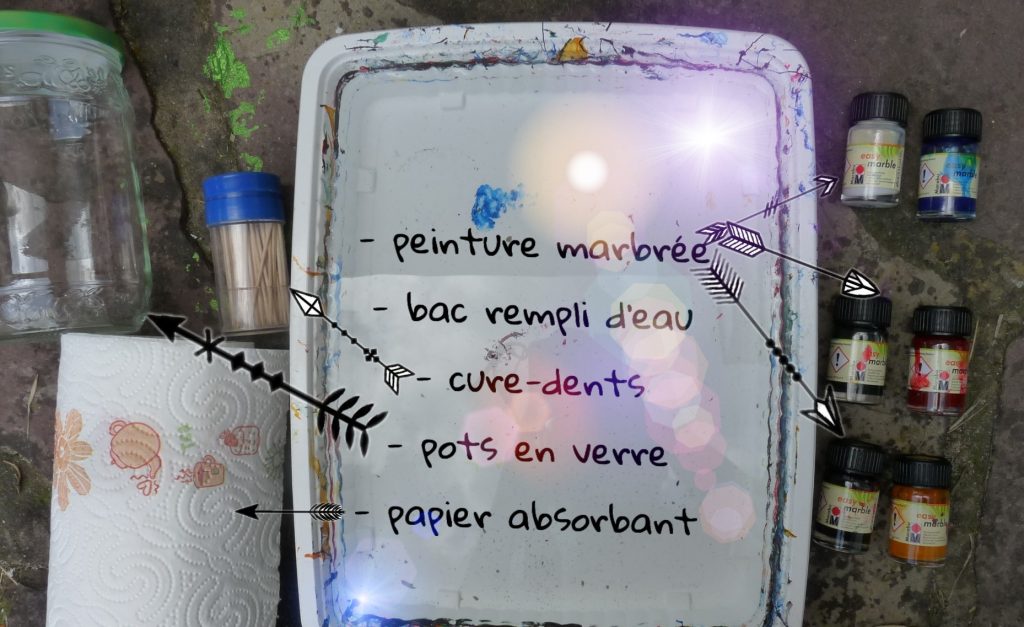 - peinture marbrée
- bac rempli d'eau
- cure-dents
- pots en verre
- papier absorbant
easy
marble
easy
marble
easy
marble
easy
marble
easy
marble
easy
marble